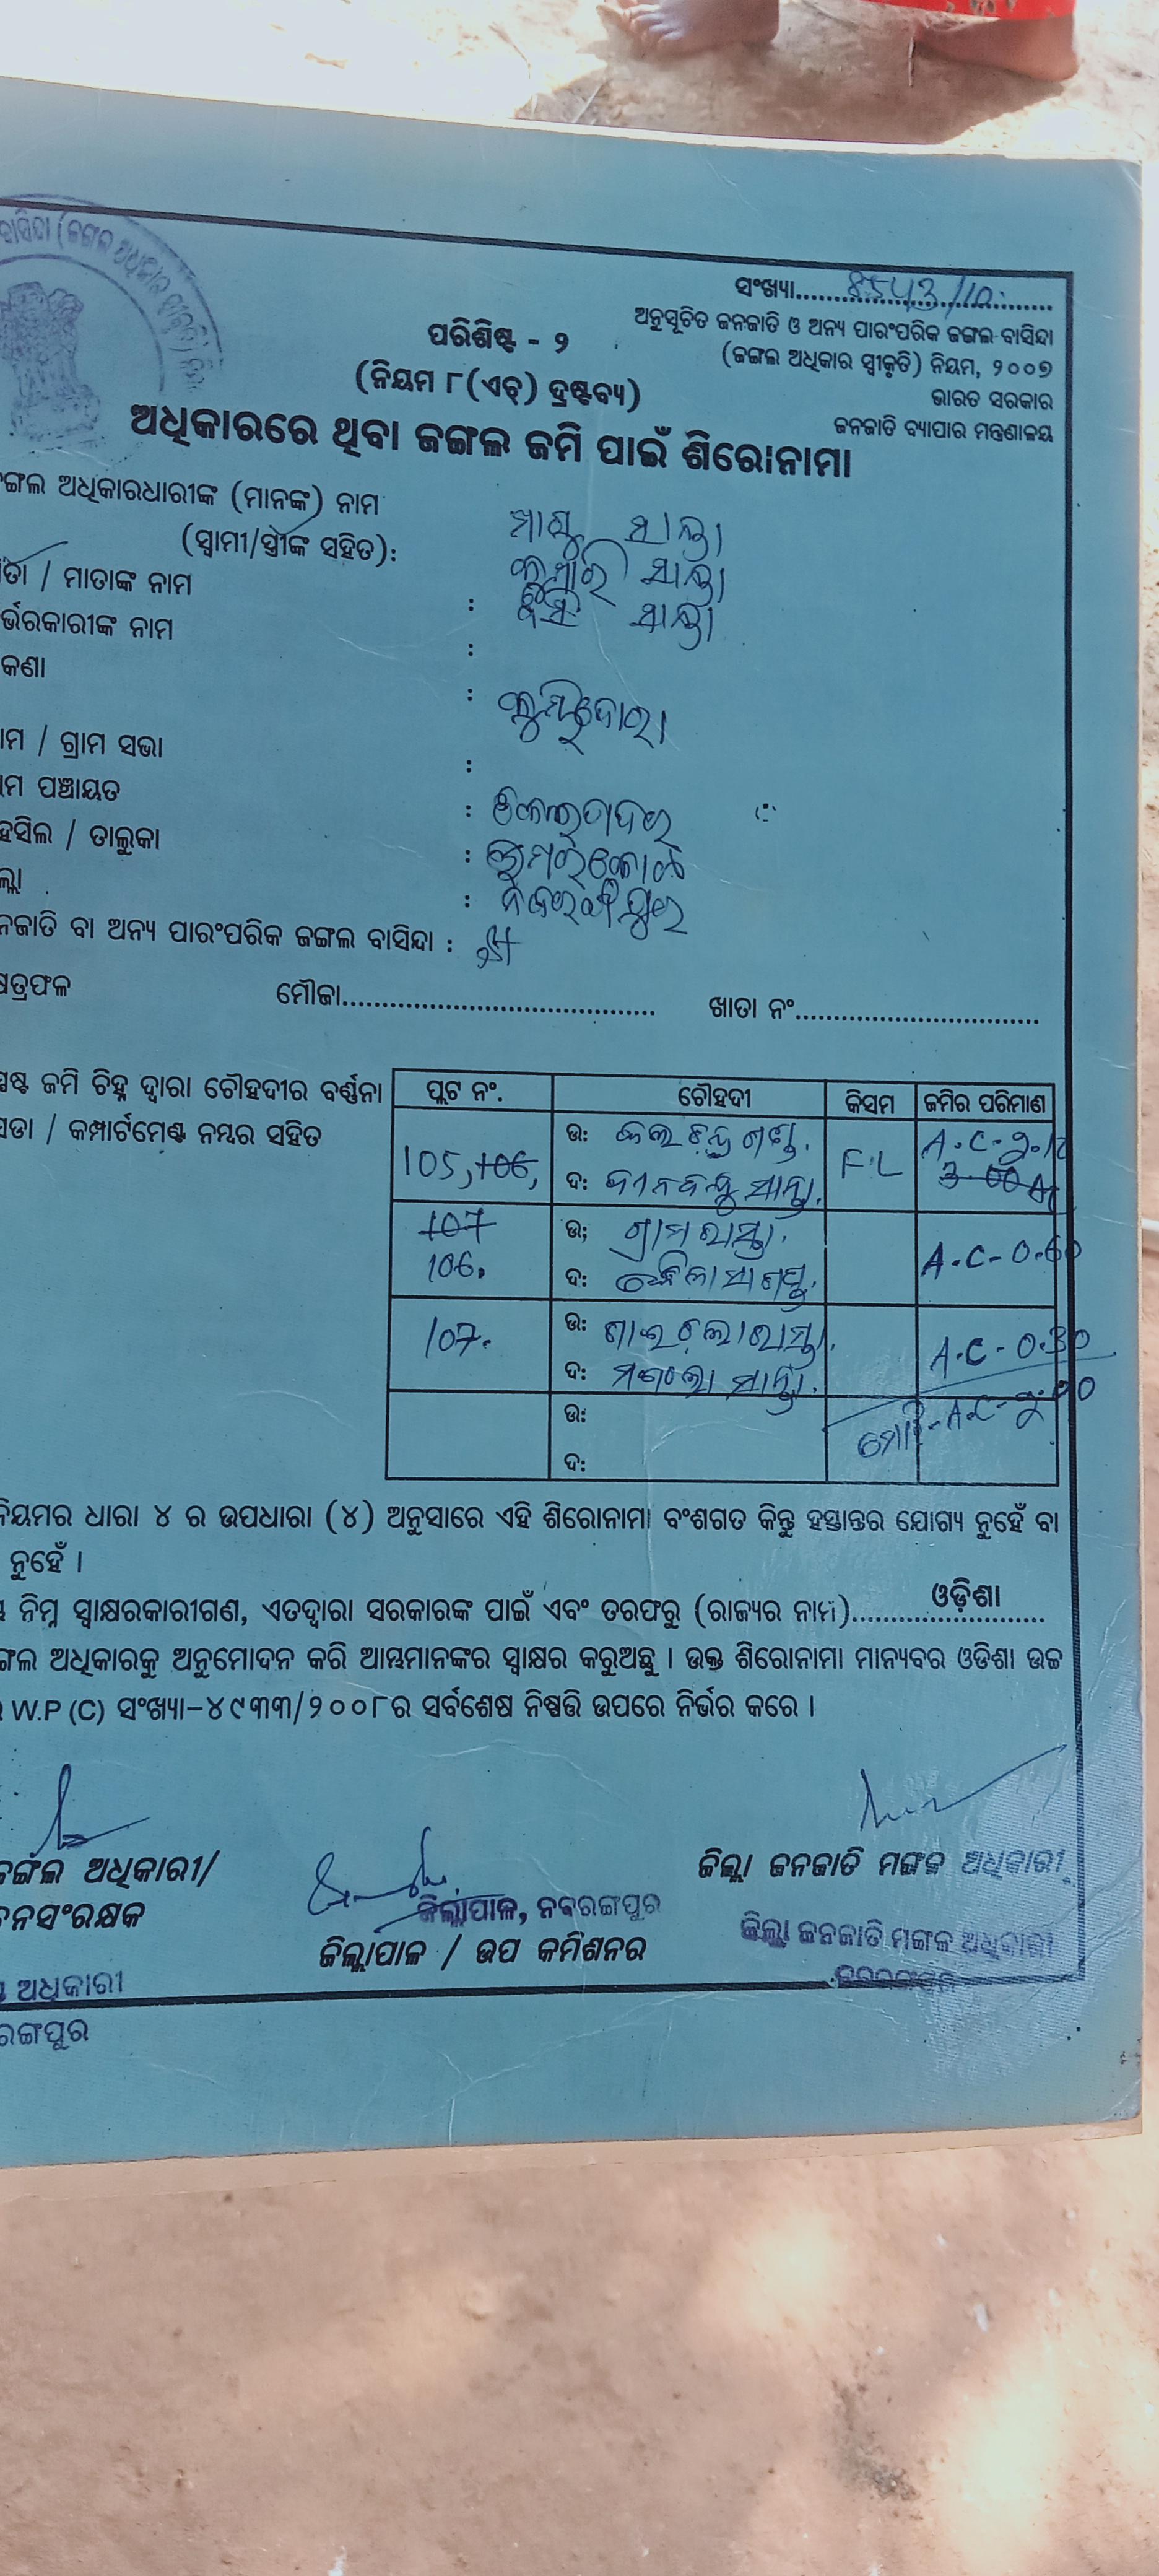 ବାସିନ୍ଦା (ଜଙ୍ଗଲ ଅଧିକାର ସ୍ୱୀକୃତି)
ସଂଖ୍ୟା........ 8543/10
ଅନୁସୂଚିତ ଜନଜାତି ଓ ଅନ୍ୟ ପାରଂପରିକ ଜଙ୍ଗଲ ବାସିନ୍ଦା
(ଜଙ୍ଗଲ ଅଧିକାର ସ୍ୱୀକୃତି) ନିୟମ, ୨୦୦୭
ଭାରତ ସରକାର
ଜନଜାତି ବ୍ୟାପାର ମନ୍ତ୍ରଣାଳୟ
ପରିଶିଷ୍ଟ - ୨
(ନିୟମ ୮(ଏଚ୍) ଦ୍ରଷ୍ଟବ୍ୟ)
ଅଧିକାରରେ ଥିବା ଜଙ୍ଗଲ ଜମି ପାଇଁ ଶିରୋନାମା
ଙ୍ଗଲ ଅଧିକାରଧାରୀଙ୍କ (ମାନଙ୍କ) ନାମ
(ସ୍ୱାମୀ/ସ୍ତ୍ରୀଙ୍କ ସହିତ):
ତା / ମାତାଙ୍କ ନାମ :
ର୍ଭରକାରୀଙ୍କ ନାମ :
କଣା :
ମ / ଗ୍ରାମ ସଭା :
ମ ପଞ୍ଚାୟତ :
ହସିଲ / ତାଲୁକା : ଉମରକୋଟ
ଲ୍ଲା : ନବରଙ୍ଗପୁର
ନଜାତି ବା ଅନ୍ୟ ପାରଂପରିକ ଜଙ୍ଗଲ ବାସିନ୍ଦା :
ଷତ୍ରଫଳ ମୌଜା........ ଖାତା ନଂ........
ଷ୍ଟ ଜମି ଚିହ୍ନ ଦ୍ୱାରା ଚୌହଦୀର ବର୍ଣ୍ଣନା
ସଡା / କମ୍ପାର୍ଟମେଣ୍ଟ ନମ୍ବର ସହିତ
ପ୍ଲଟ ନଂ. ଚୌହଦୀ କିସମ ଜମିର ପରିମାଣ
105, 106, ଉ: F.L A.C-2.10
ଦ: ଦୀନବନ୍ଧୁ ସାନ୍ତା.
107 ଉ: ଗ୍ରାମ ରାସ୍ତା.
106. ଦ: A.C-0.60
107. ଉ: A.C-0.30
ଦ: ମଙ୍ଗଲା ସାନ୍ତା.
ଉ: ମୋଟ-A.C-3.00
ଦ:
ନିୟମର ଧାରା ୪ ର ଉପଧାରା (୪) ଅନୁସାରେ ଏହି ଶିରୋନାମା ବଂଶଗତ କିନ୍ତୁ ହସ୍ତାନ୍ତର ଯୋଗ୍ୟ ନୁହେଁ ବା
ନୁହେଁ ।
ନିମ୍ନ ସ୍ୱାକ୍ଷରକାରୀଗଣ, ଏତଦ୍ୱାରା ସରକାରଙ୍କ ପାଇଁ ଏବଂ ତରଫରୁ (ରାଜ୍ୟର ନାମ)........ ଓଡ଼ିଶା
ଙ୍ଗଲ ଅଧିକାରକୁ ଅନୁମୋଦନ କରି ଆମ୍ଭମାନଙ୍କର ସ୍ୱାକ୍ଷର କରୁଅଛୁ । ଉକ୍ତ ଶିରୋନାମା ମାନ୍ୟବର ଓଡିଶା ଉଚ୍ଚ
W.P (C) ସଂଖ୍ୟା-୪୯୩୩/୨୦୦୮ର ସର୍ବଶେଷ ନିଷ୍ପତ୍ତି ଉପରେ ନିର୍ଭର କରେ ।
ଙ୍ଗଲ ଅଧିକାରୀ/
ନସଂରକ୍ଷକ
ଅଧିକାରୀ
ରଙ୍ଗପୁର
ଜିଲ୍ଲାପାଳ, ନବରଙ୍ଗପୁର
ଜିଲ୍ଲାପାଳ / ଉପ କମିଶନର
ଜିଲ୍ଲା ଜନଜାତି ମଙ୍ଗଳ ଅଧିକାରୀ
ଜିଲ୍ଲା ଜନଜାତି ମଙ୍ଗଳ ଅଧିକାରୀ
ନବରଙ୍ଗପୁର